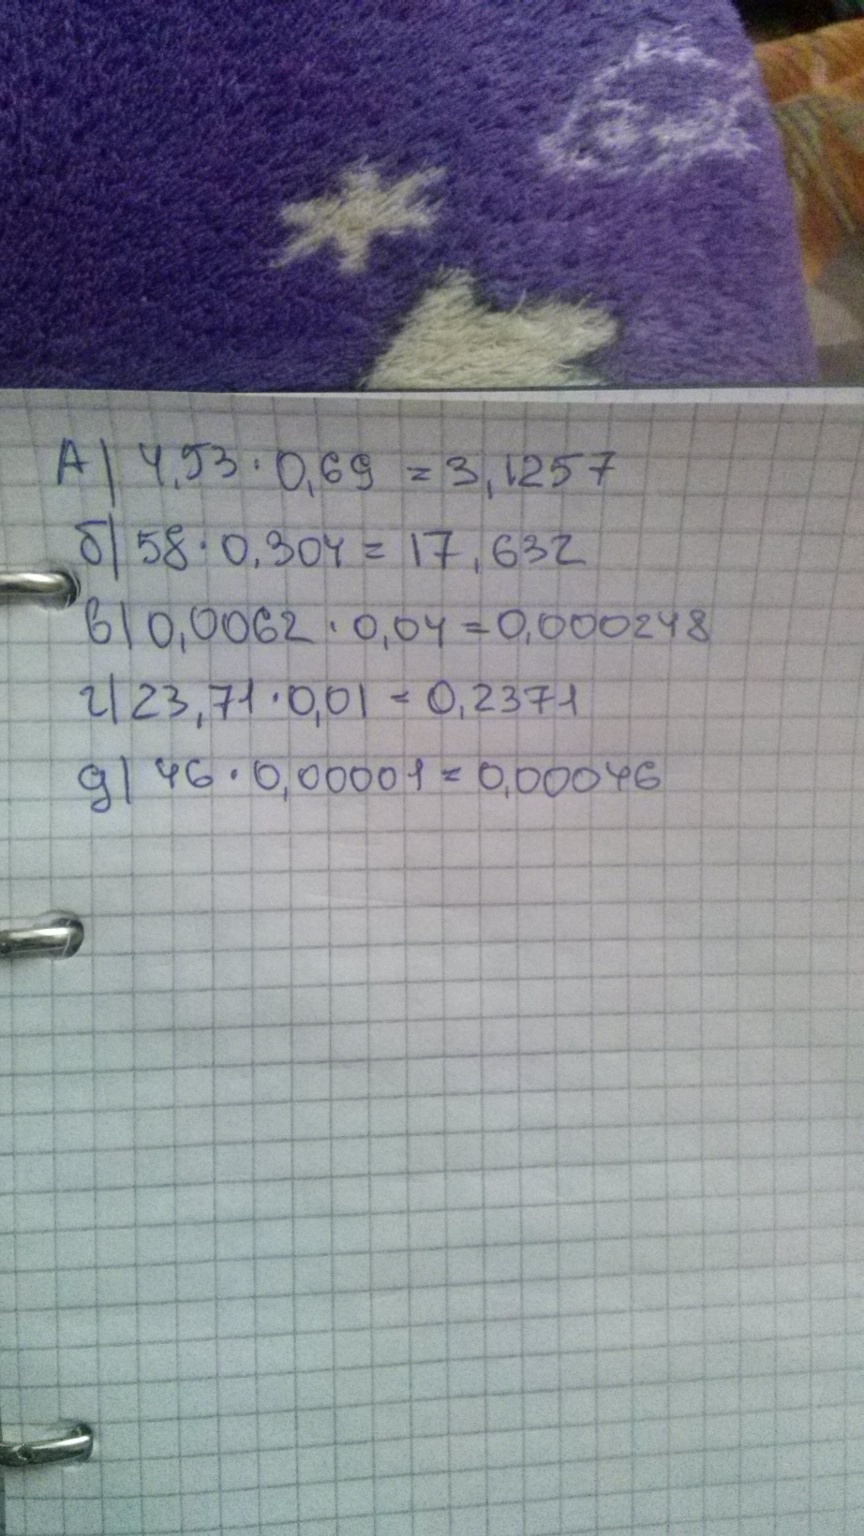 А) 4,53 · 0,69 = 3,1257
б) 58 · 0,304 = 17,632
в) 0,0062 · 0,04 = 0,000248
г) 23,71 · 0,01 = 0,2371
д) 46 · 0,00001 = 0,00046